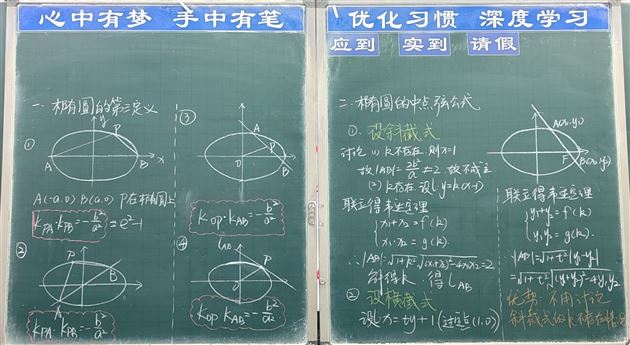 心中有梦 手中有笔
一、椭圆的第三定义
①
y
P
A
B
x
A(-a,0) B(a,0) P在椭圆上
K_PA·K_PB=-b²/a²=e²-1
②
P
B
A
K_PA·K_PB=-b²/a²
③
A
P
O
B
K_OP·K_AB=-b²/a²
④
l_AB
P
O
K_OP·K_AB=-b²/a²
优化习惯 深度学习
应到 实到 请假
二、椭圆的中点弦公式
①设斜截式
讨论 (1) k不存在 则x=1
故|AB|=2b²/a≠2 故不成立
(2) k存在 设l:y=k(x-1)
联立得韦达定理
{x₁+x₂=f(k)
x₁·x₂=g(k)
∴|AB|=√1+k²·√(x₁+x₂)²-4x₁x₂=2
解得k 得l_AB
②设横截式
设l:x=ty+1(过定点(1,0))
A(x₁,y₁)
F
B(x₂,y₂)
联立得韦达定理
{y₁+y₂=f(k)
y₁y₂=g(k)
∴|AB|=√1+t²|y₁-y₂|
=√1+t²√(y₁+y₂)²-4y₁y₂
优势:不用讨论
斜截式的k不存在情况